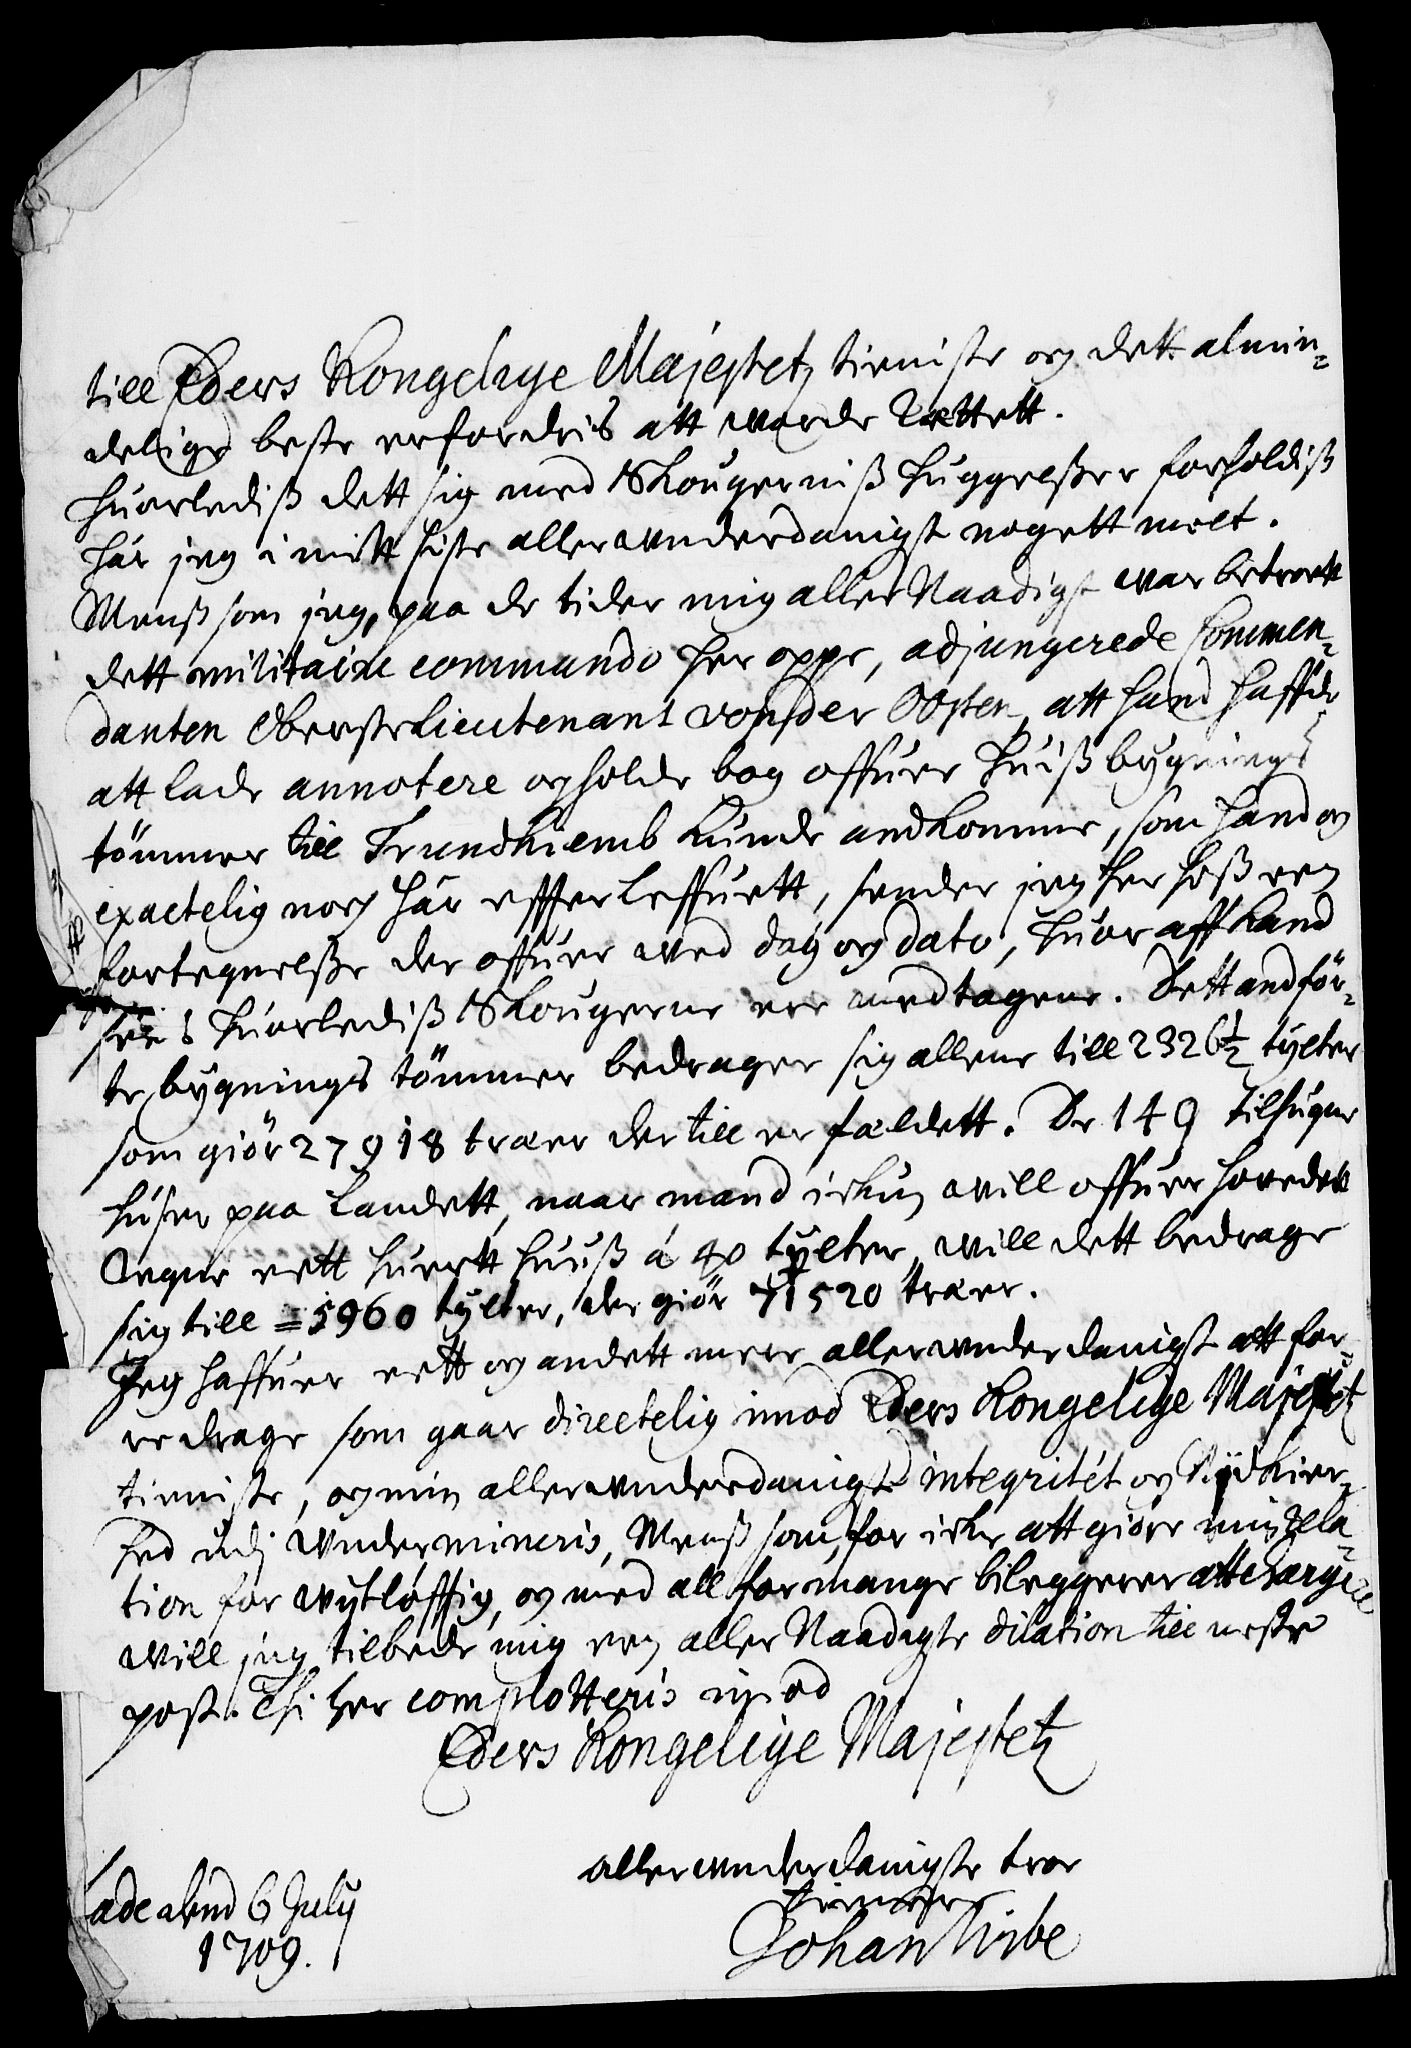 till Eders Kongelige Majestetz tieniste og dett almin¬
delige beste erfordris att worde Rettett.
Huorlediß dett sig med Skougerniß huggelßer forholdiß
har jeg i mitt siste allerwnderdanigst nogett melt.
Menß som jeg, paa de tider mig aller Naadigst war betroett
dett militaire commando her oppe, adjungerede Commen¬
danten Oberstelieutenant von der Oosten, att hand haffde
att lade annotere og holde bog offuer huiß bygnings
tömmer till Trundhiemb kunde andkomme, som hand og
exactelig nock har efterleffuett, sender jeg her hoß een
fortegnelße der offuer med dag og dato, huor aff kand
sees huorlediß Skougerne ere medtagene. Dett andför¬
te bygnings tömmer bedrager sig allene till 2326½ tylter
som giör 27918 træer der till er fældett. De 149 tilhugne
huser paa Landett, naar mand ickun will offuer hovedett
Regne ett huertt huuß á 40 tylter, will dett bedrage
sig till = 5960 tylter, der giör 71520 træer.
Jeg haffuer ett og andett meere allerwnderdanigst att for¬
redrage som gaar directelig imod Eders Kongelige Majestetz
tieniste, og min allerwnderdanigste integritét og Nidkier¬
hed udj wndermineris, Menß som, for icke att giöre min Rela¬
tion for wytløfftig, og med all for mange bileggerer att chargere
will jeg tilbede mig een aller Naadigste dilation till neste
post. Thi her complotteris imod
Eders Kongelige Majestetz
allerwnderdanigste troe
tiener
Johan Wibe
Lade alend 6 July
1709.